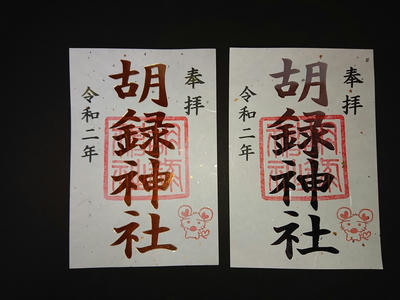 奉拝
胡録神社
令和二年
奉拝
胡録神社
令和二年